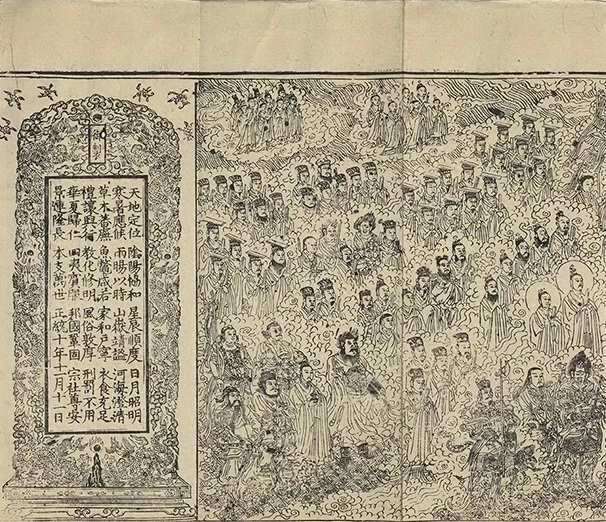 天地定位 陰陽協和 星辰順度 日月昭明
寒暑應候 雨暘以時 山嶽靖謐 河海澄清
草木蕃廡 魚鱉咸若 家和戶寧 衣食充足
禮讓興行 教化修明 風俗敦厚 刑罰不用
華夏歸仁 四夷賓服 邦國鞏固 宗社奠安
景運隆長 本支萬世 正統十年十一月十一日